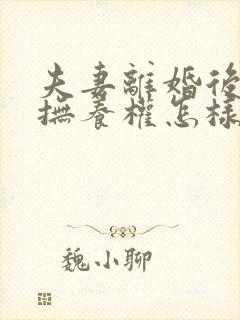 夫妻離婚後
撫養權怎樣
魏小聊